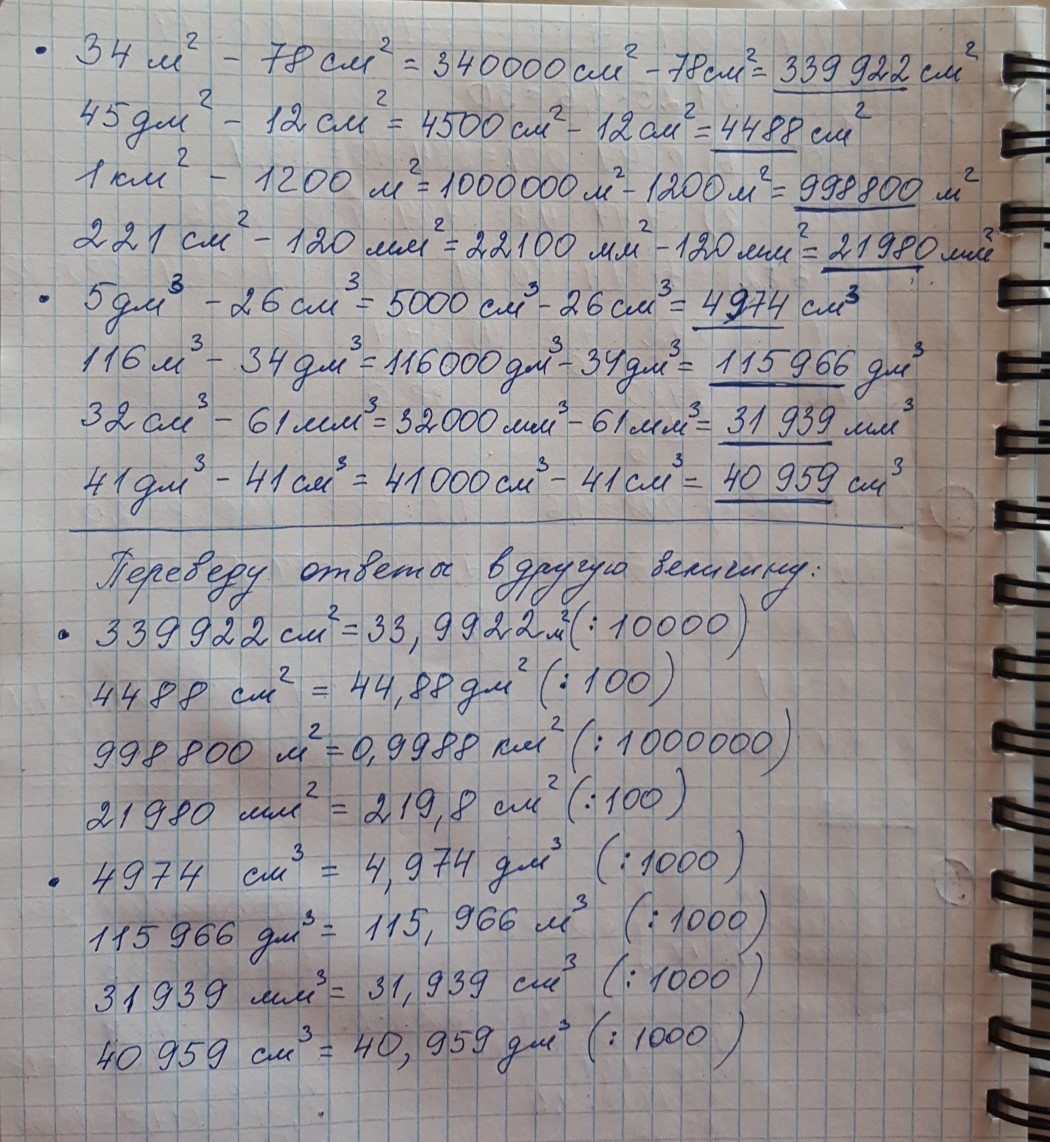 • 34 м² - 78 см² = 340000 см² - 78 см² = 339 922 см²
45 дм² - 12 см² = 4500 см² - 12 см² = 4488 см²
1 км² - 1200 м² = 1000000 м² - 1200 м² = 998800 м²
221 см² - 120 мм² = 22100 мм² - 120 мм² = 21980 мм²
• 5 дм³ - 26 см³ = 5000 см³ - 26 см³ = 4974 см³
116 м³ - 34 дм³ = 116000 дм³ - 34 дм³ = 115 966 дм³
32 см³ - 61 мм³ = 32000 мм³ - 61 мм³ = 31 939 мм³
41 дм³ - 41 см³ = 41000 см³ - 41 см³ = 40 959 см³
Переведу ответы в другую величину:
• 339922 см² = 33,9922 м² (:10000)
4488 см² = 44,88 дм² (:100)
998800 м² = 0,9988 км² (:1000000)
21980 мм² = 219,8 см² (:100)
• 4974 см³ = 4,974 дм³ (:1000)
115 966 дм³ = 115,966 м³ (:1000)
31939 мм³ = 31,939 см³ (:1000)
40 959 см³ = 40,959 дм³ (:1000)